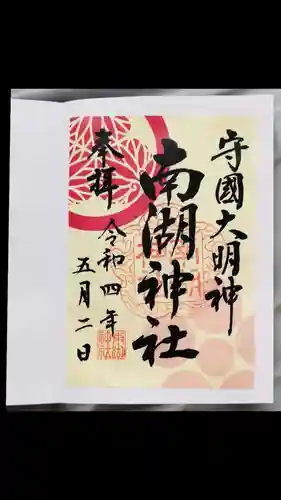 守國大明神
南湖神社
奉拝
令和四年
五月二日